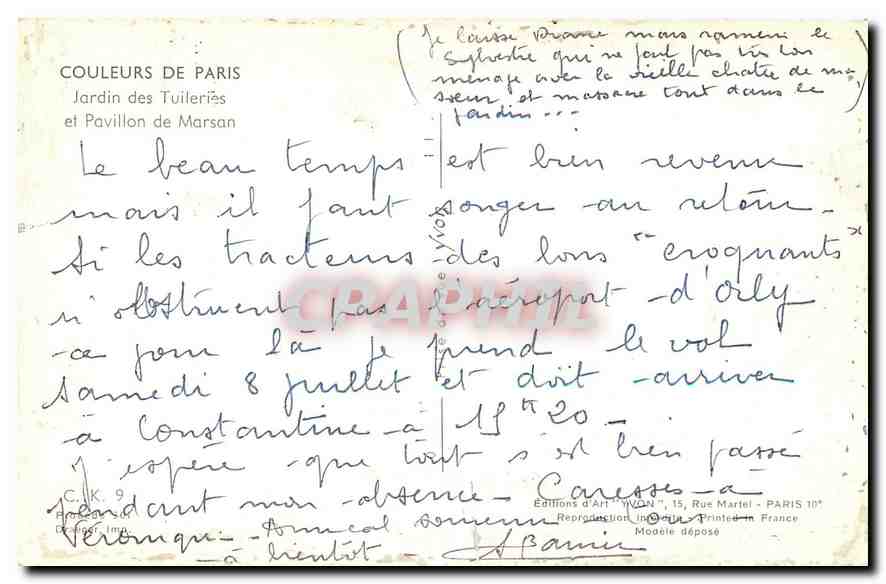 COULEURS DE PARIS
Jardin des Tuileries
et Pavillon de Marsan
(Je laisse Diane mais ramène le
Sylvestre qui ne fait pas très bon
ménage avec la vieille chatte de ma
soeur et massacre tout dans le
jardin...)
Le beau temps est bien revenu
mais il faut songer au retour -
Si les tracteurs des bons "croquants"
n'obstruent pas l'aéroport d'Orly
ce jour là je prend le vol
samedi 8 juillet et doit arriver
à Constantine à 15h 20 -
J'espère que tout s'est bien passé
pendant mon absence - Caresses à
Véronique - Amical souvenir
à bientôt -
C. K. 9
Draeger, Imp.
YVON
CPAPHIL
Editions d'Art "YVON", 15, Rue Martel - PARIS 10e
Reproduction interdite - Printed in France
Modèle déposé